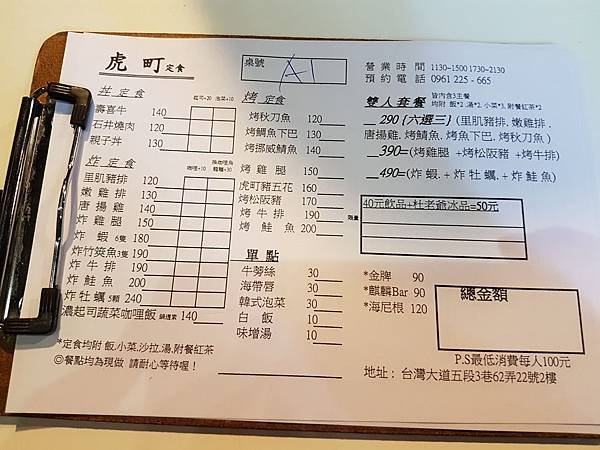 虎 町 定食
桌號 A1
營 業 時 間 1130~1500 1730~2130
預 約 電 話 0961 225 - 665
丼 定 食 起司+20 泡菜+10
壽喜牛 140
石井燒肉 140
親子丼 130
炸 定 食 換咖哩魚
咖哩+10 鍋麵+30
里肌豬排 120
嫩 雞 排 130
唐 揚 雞 140
炸 雞 腿 150
炸 蝦 6隻 180
炸竹筴魚3隻 190
炸 牛 排 190
炸 鮭 魚 200
炸 牡 蠣 5顆 240
濃起司蔬菜咖哩飯 鍋邊素 140
*定食均附 飯,小菜,沙拉,湯,附餐紅茶
◎餐點均為現做 請耐心等待喔！
烤 定食
烤秋刀魚 120
烤鯛魚下巴 130
烤挪威鯖魚 140
烤 雞 腿 150
虎町豬五花 160
烤松阪豬 170
烤 牛 排 190
烤 鮭 魚 200
單 點
牛蒡絲 30
海帶唇 30
韓式泡菜 30
白 飯 10
味增湯 30
雙人套餐 皆內含3主餐
均附 飯*2 ,湯*2, 小菜*3, 附餐紅茶*2
290 {六選三} (里肌豬排, 嫩雞排 ,
唐揚雞, 烤鯖魚, 烤魚下巴, 烤秋刀魚 )
390=(烤雞腿 +烤松阪豬 +烤牛排)
490=(炸 蝦, +炸 牡 蠣, +炸 鮭魚)
限量
40元飲品+杜老爺冰品=50元
*金牌 90
*麒麟Bar 90
*海尼根 120
總金額
P.S最低消費每人100元
地址 : 台灣大道五段3巷62弄22號2樓